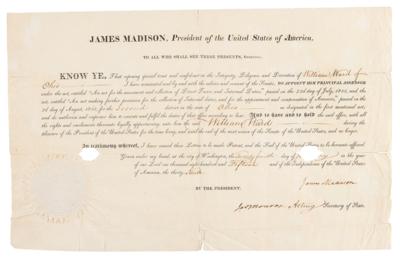 JAMES MADISON, President of the United States of America,
TO ALL WHO SHALL SEE THESE PRESENTS, GREETING:
KNOW YE, That reposing special trust and confidence in the Integrity, Diligence and Discretion of William Ward of
Ohio I have nominated and by and with the advice and consent of the Senate, DO APPOINT HIM PRINCIPAL ASSESSOR
under the act, entitled "An act for the assessment and collection of Direct Taxes and Internal Duties," passed on the 22d of July, 1813, and the
act, entitled "An act making further provision for the collection of Internal duties, and for the appointment and compensation of Assessors," passed on the
2d of August, 1813, for the Second district in the state of Ohio as designated in the first mentioned act;
and do authorize and empower him to execute and fulfil the duties of that office according to law: AND TO HAVE AND TO HOLD the said office, with all
the rights and emoluments thereunto legally appertaining unto him the said William Ward during the
pleasure of the President of the United States for the time being, and until the end of the next session of the Senate of the United States, and no longer.
IN TESTIMONY WHEREOF, I have caused these Letters to be made Patent, and the Seal of the United States to be hereunto affixed.
Given under my hand, at the city of Washington, the day of in the year
of our Lord one thousand eight hundred and fifteen and of the Independence of the United States
of America, the thirty ninth.
James Madison
BY THE PRESIDENT.
Jas Monroe Acting Secretary of State.